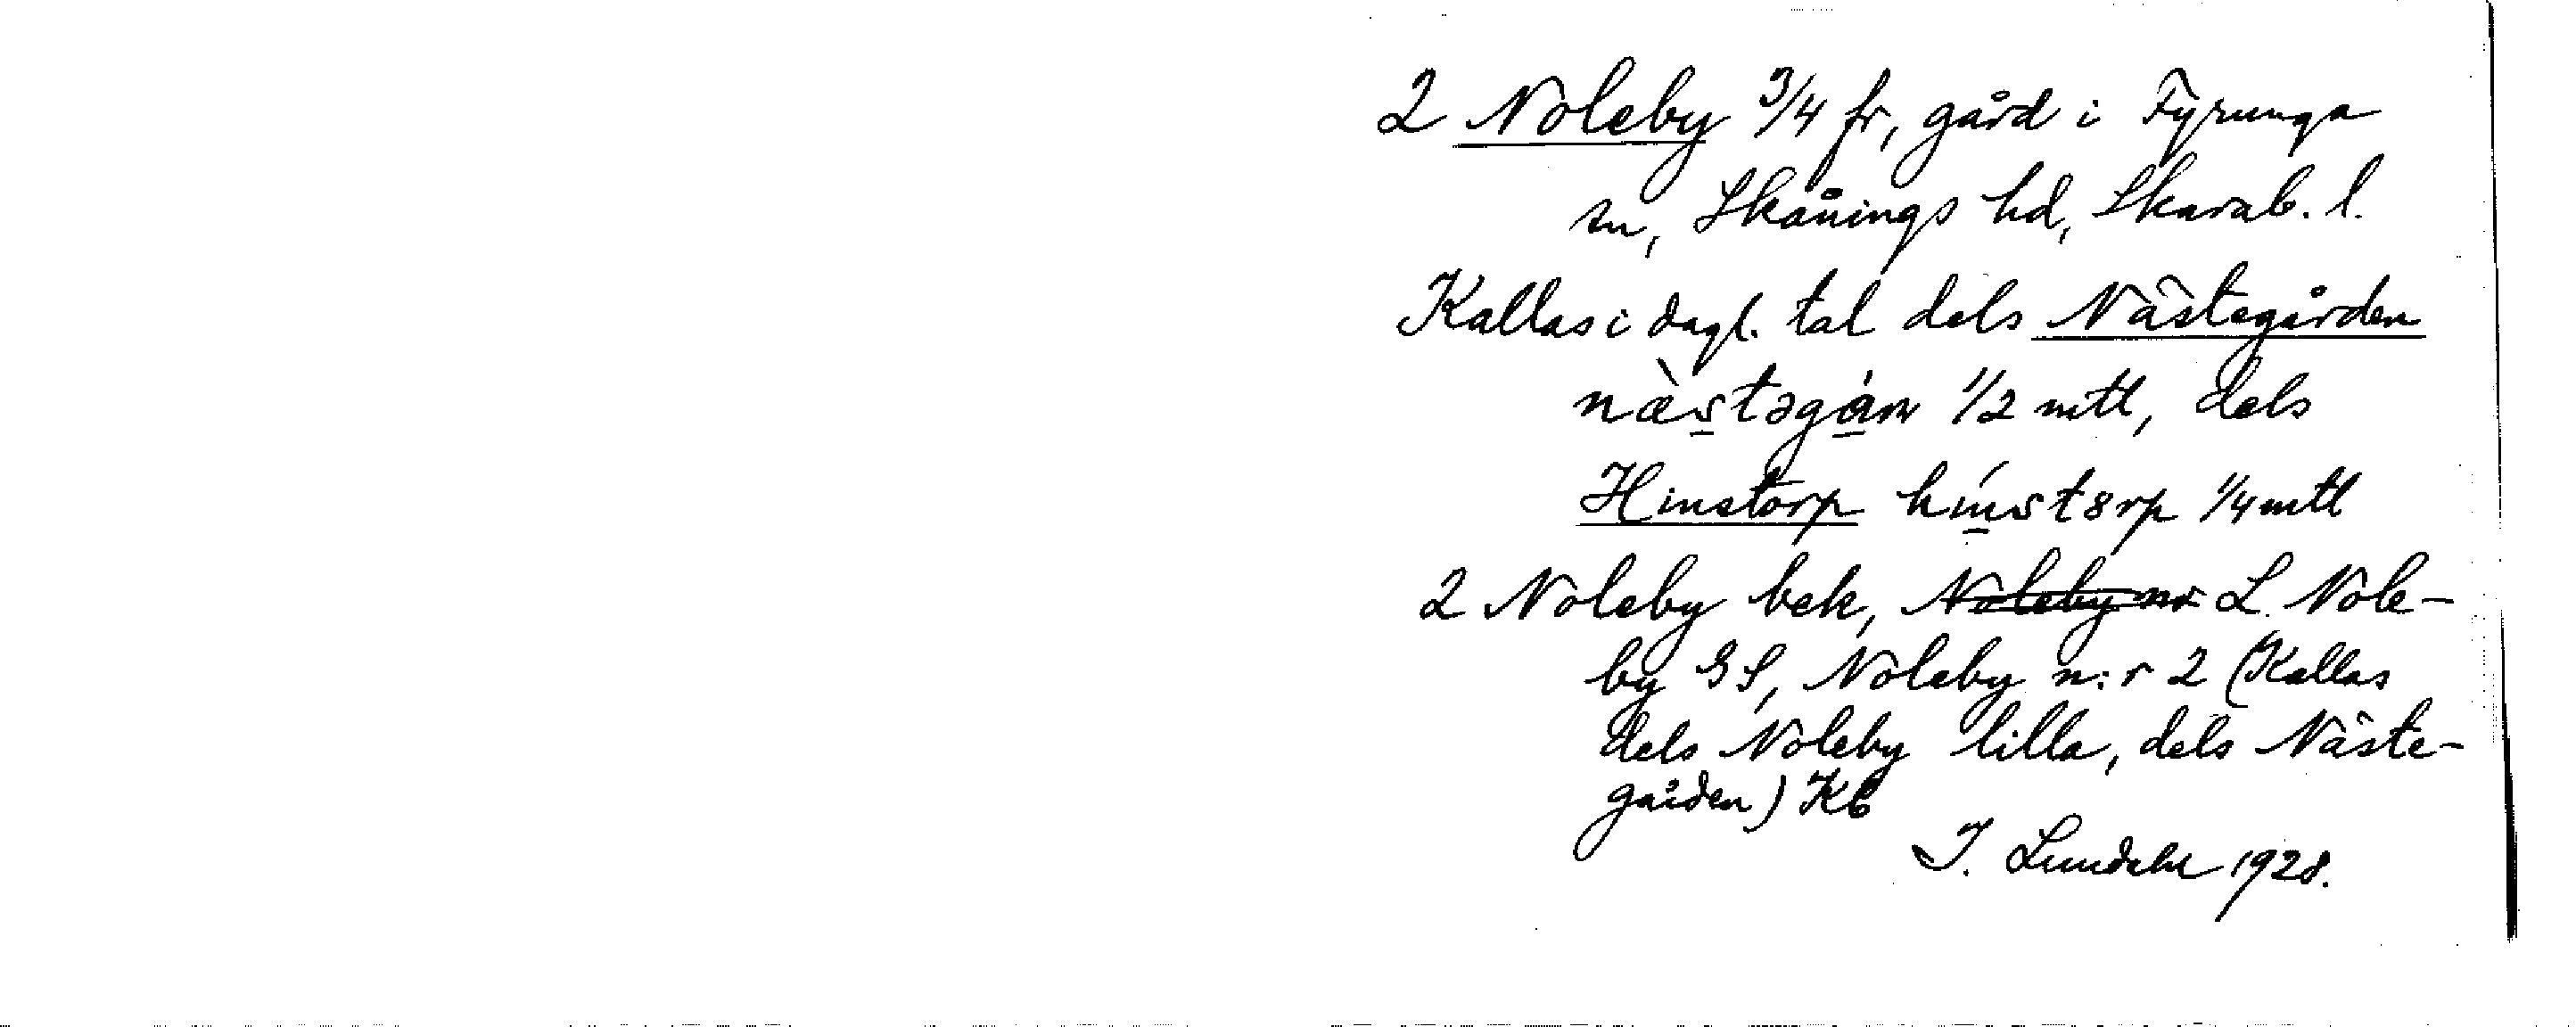 2 Noleby 3/4 fr, gård i Fyrunga
sn, Skånings hd, Skarab. l.
Kallas i dagl. tal dels Nästegården
næ̀stəgán 1/2 mtl, dels
Hinstorp hínstɞrp 1/4 mtl
2 Noleby bek, Noleby nr L. Nole-
by GS, Noleby n:r 2 (Kallas
dels Noleby lilla, dels Näste-
gården) Kb
I. Lundahl 1928.